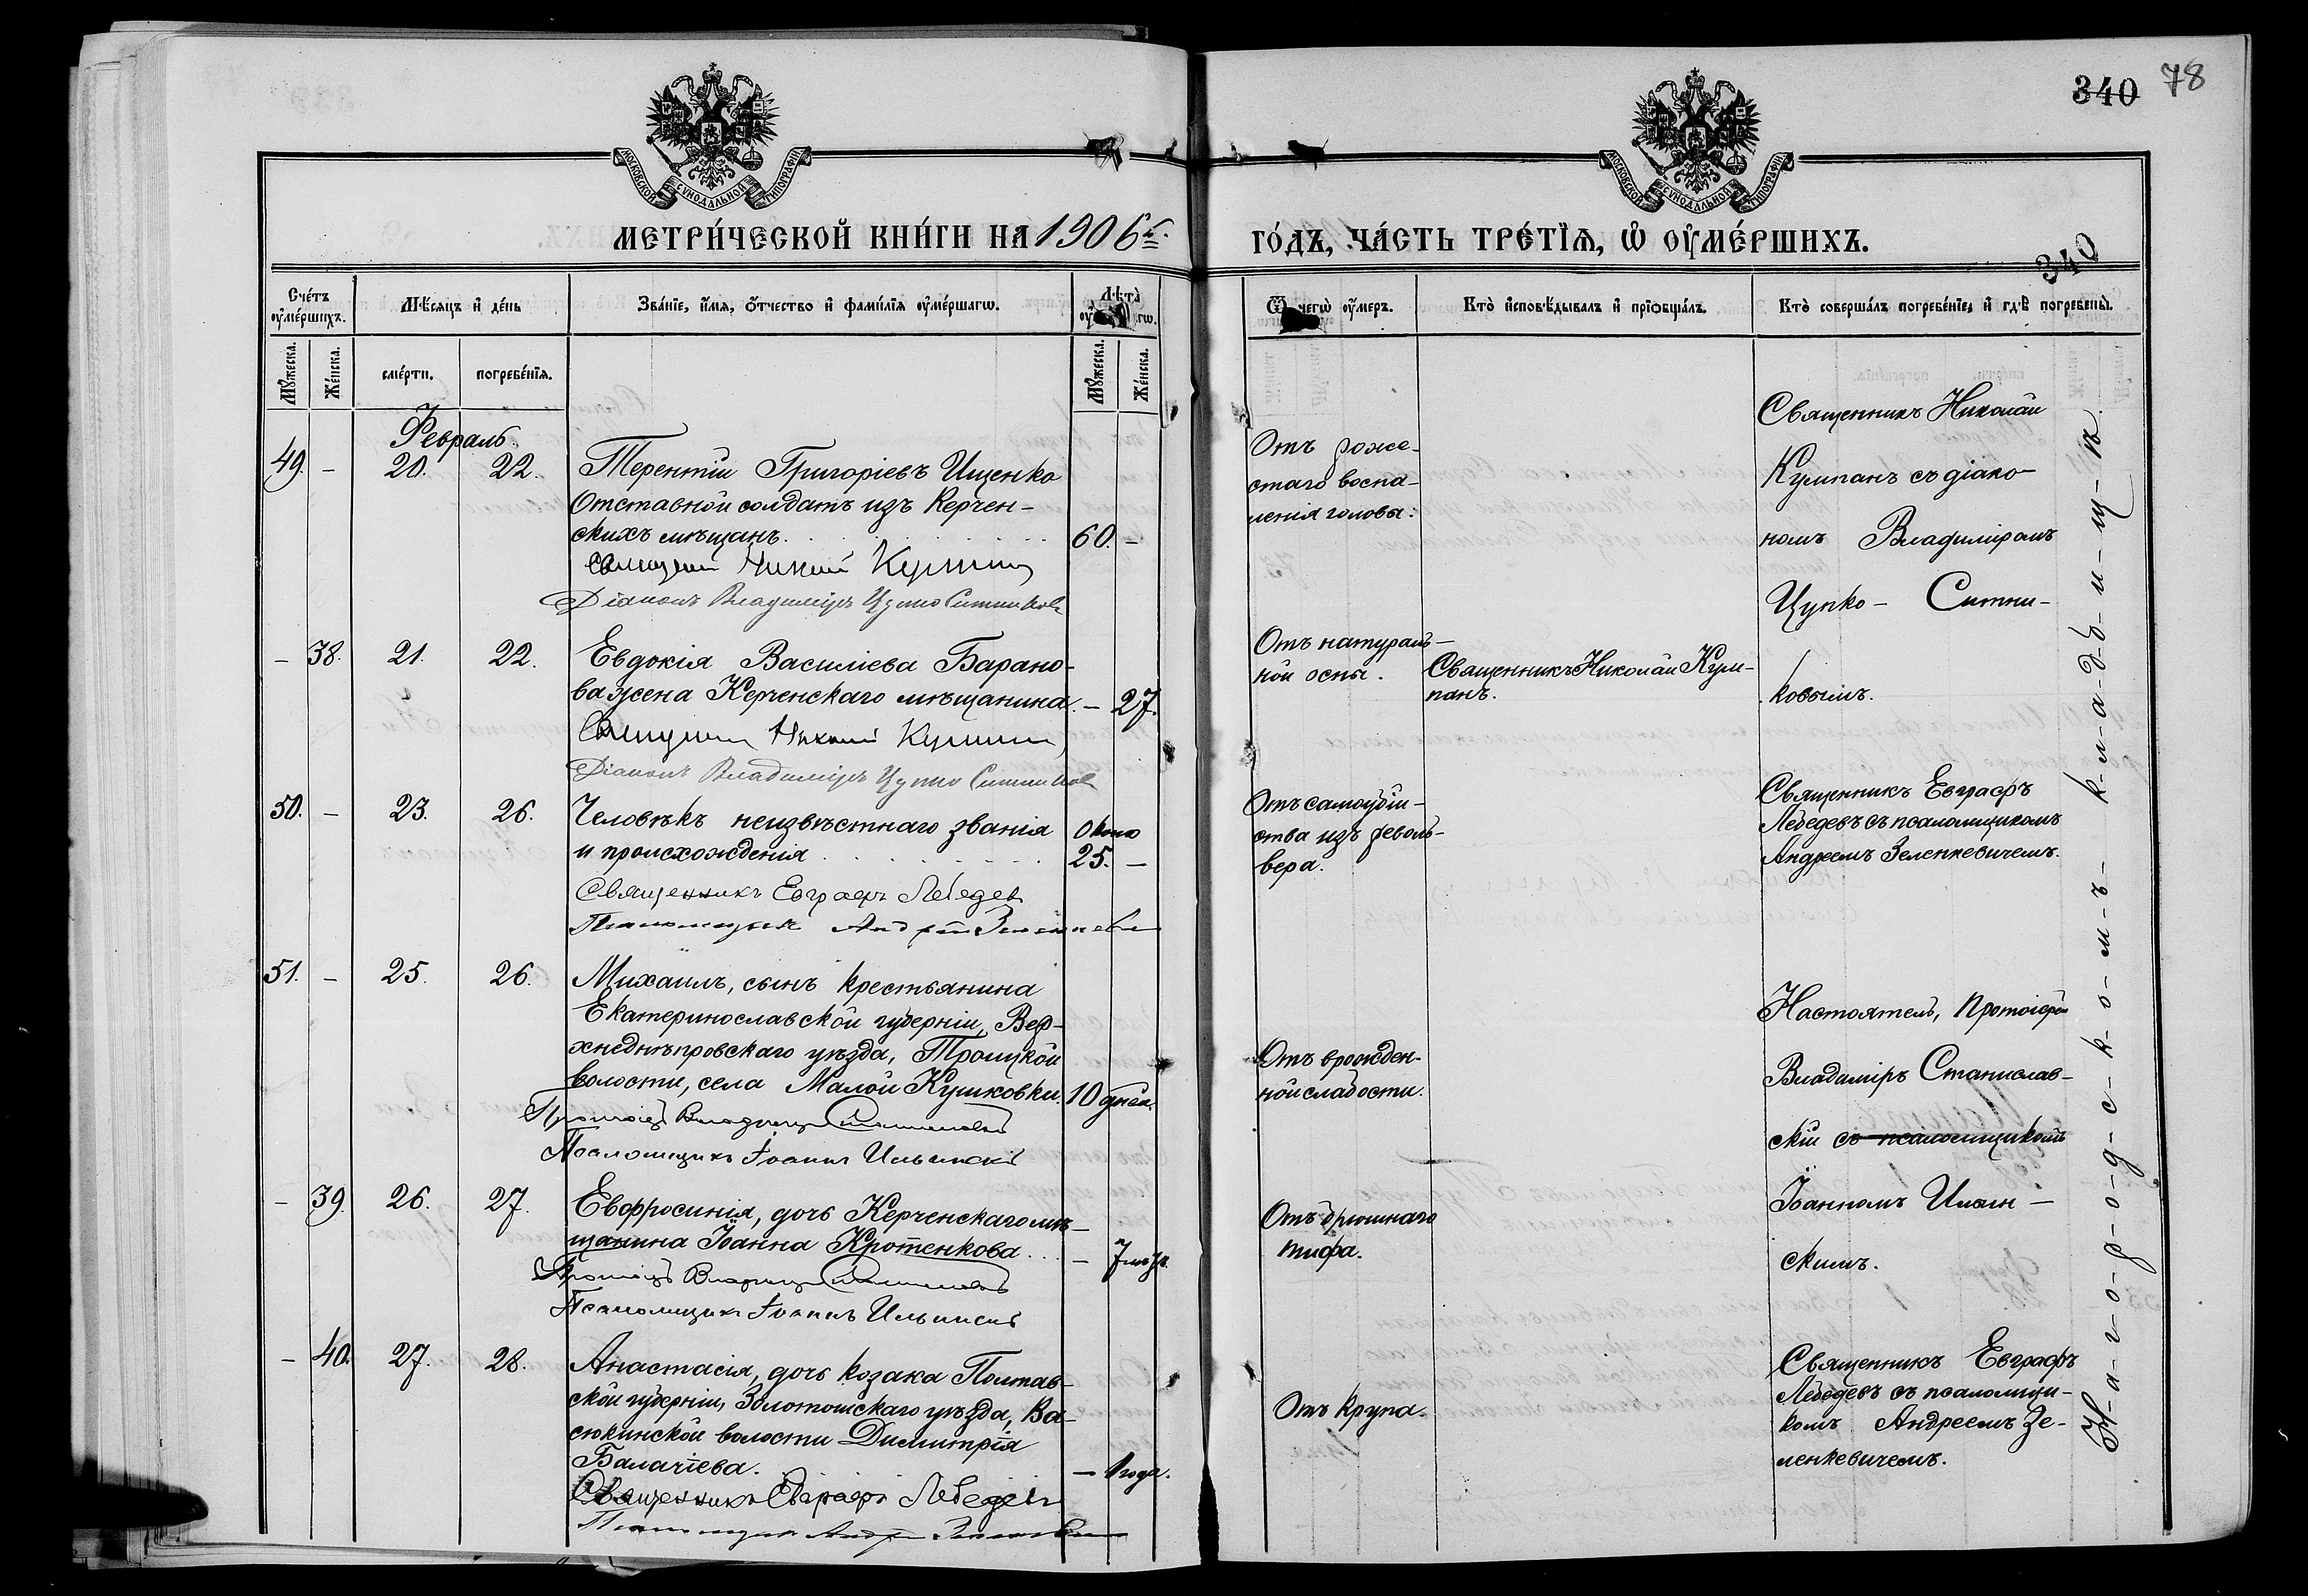 340 78
МОСКОВСКОЙ СѴНОДАЛЬНОЙ ТИПОГРАФІИ
МОСКОВСКОЙ СѴНОДАЛЬНОЙ ТИПОГРАФІИ
МЕТРИ́ЧЕСКОЙ КНИ́ГИ НА 1906 г.
ГО́ДЪ, ЧА́СТЬ ТРЕ́ТІѦ, Ѽ ОУ҆МЕ́РШИХЪ.
340
Сче́тъ оу҆ме́ршихъ.
Мѣ́сяцъ и҆ де́нь
Зва́ніе, и҆́мя, ѻ҆́тчество и҆ фами́лія оу҆ме́ршагѡ.
Лѣта̀
Ѿ чегѡ̀ оу҆́меръ.
Кто̀ и҆сповѣ́дывалъ и҆ прїѡбща́лъ.
Кто̀ соверша́лъ погребе́ніе, и҆ гдѣ̀ погребены̀.
Мꙋ́жеска.
Же́нска.
сме́рти.
погребе́нїя.
Мꙋ́жеска.
Же́нска.
Февраль.
49. – 20. 22. Терентій Григоріевъ Ищенко
Отставной солдатъ изъ Керчен-
скихъ мѣщанъ. 60. –
Священникъ Николай Кумпанъ
Діаконъ Владиміръ Цупко Ситниковъ
Отъ роже-
стаго воспа-
ленія головы.
Священникъ Николай
Кумпанъ съ діако-
номъ Владиміромъ
Цупко- Ситни-
ковымъ.
– 38. 21. 22. Евдокія Василіева Барано-
ва жена Керченскаго мѣщанина. – 27.
Священникъ Николай Кумпанъ
Діаконъ Владиміръ Цупко Ситниковъ
Отъ натураль-
ной оспы.
Священникъ Николай Кум-
панъ.
50. – 23. 26. Человѣкъ неизвѣстнаго званія
и происхожденія около 25. –
Священникъ Евграфъ Лебедевъ
Псаломщикъ Андрей Зеленкевичъ
Отъ самоубій-
ства изъ револь-
вера.
Священникъ Евграфъ
Лебедевъ съ псаломщикомъ
Андреемъ Зеленкевичемъ.
51. – 25. 26. Михаилъ, сынъ крестьянина
Екатеринославской губерніи, Вер-
хнеднѣпровскаго уѣзда, Троицкой
волости, села Малой Кушковки. 10 дней.
Протоіер. Владиміръ Станиславскій
Псаломщикъ Іоаннъ Ильинскій
Отъ врожден-
ной слабости.
Настоятель, Протоіерей
Владиміръ Станислав-
скій съ псаломщикомъ
Іоанномъ Ильин-
скимъ.
– 39. 26. 27. Евфросинія, дочь Керченскаго мѣ-
щанина Іоанна Кротенкова. – 7 мѣс.
Протоіер. Владиміръ Станиславскій
Псаломщикъ Іоаннъ Ильинскій
Отъ брюшнаго
тифа.
– 40. 27. 28. Анастасія, дочь козака Полтав-
ской губерніи, Золотошскаго уѣзда, Ва-
сюкинской волости Димитрія
Балачіева. – 1 года.
Священникъ Евграфъ Лебедевъ
Псаломщикъ Андрей Зеленкевичъ
Отъ крупа.
Священникъ Евграфъ
Лебедевъ съ псаломщи-
комъ Андреемъ Зе-
ленкевичемъ.
На-г-о-р-о-д-с-к-о-м-ъ- к-л-а-д-б-и-щ-ѣ.